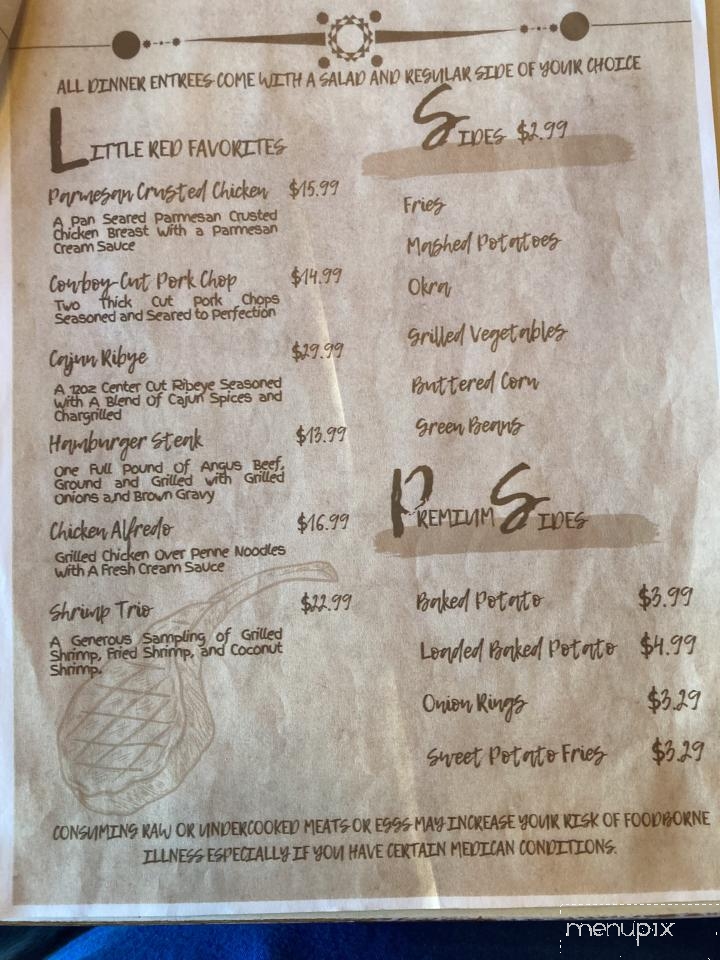 ALL DINNER ENTREES COME WITH A SALAD AND REGULAR SIDE OF YOUR CHOICE
LITTLE RED FAVORITES
Parmesan Crusted Chicken $15.99
A Pan Seared Parmesan Crusted
Chicken Breast With a Parmesan
Cream Sauce
Cowboy-Cut Pork Chop $14.99
Two Thick Cut Pork Chops
Seasoned and Seared to Perfection
Cajun Ribye $29.99
A 12oz Center Cut Ribeye Seasoned
With A Blend Of Cajun Spices and
Chargrilled
Hamburger Steak $13.99
One Full Pound Of Angus Beef,
Ground and Grilled with Grilled
Onions and Brown Gravy
Chicken Alfredo $16.99
Grilled Chicken Over Penne Noodles
With A Fresh Cream Sauce
Shrimp Trio $22.99
A Generous Sampling of Grilled
Shrimp, Fried Shrimp, and Coconut
Shrimp.
SIDES $2.99
Fries
Mashed Potatoes
Okra
Grilled Vegetables
Buttered Corn
Green Beans
PREMIUM SIDES
Baked Potato $3.99
Loaded Baked Potato $4.99
Onion Rings $3.29
Sweet Potato Fries $3.29
CONSUMING RAW OR UNDERCOOKED MEATS OR EGGS MAY INCREASE YOUR RISK OF FOODBORNE
ILLNESS ESPECIALLY IF YOU HAVE CERTAIN MEDICAN CONDITIONS.
menupix